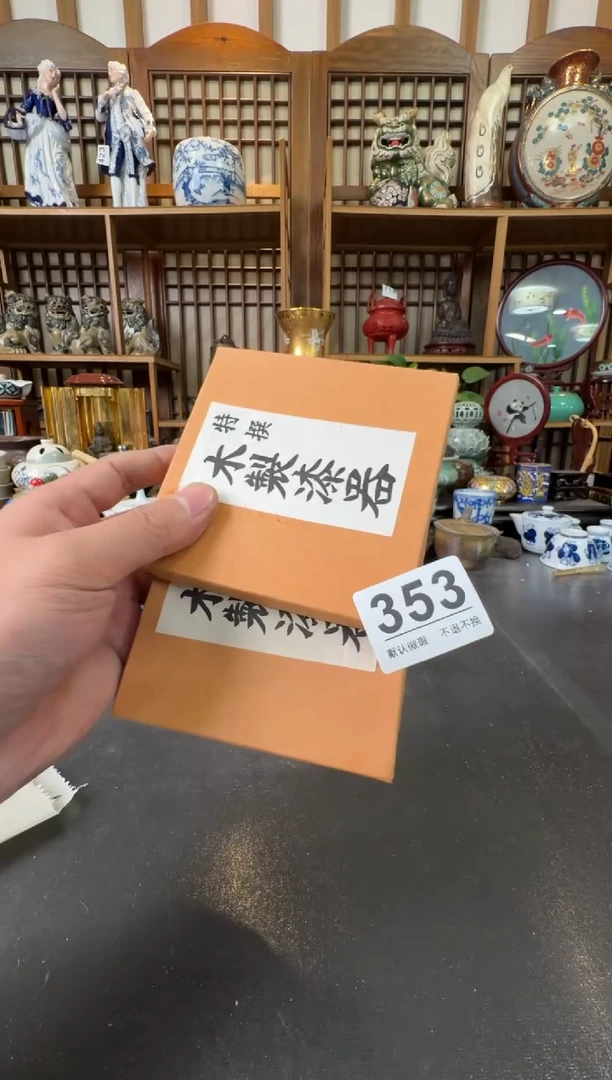 特撰
木製漆器
木製漆器
353
默认微瑕 不退不换